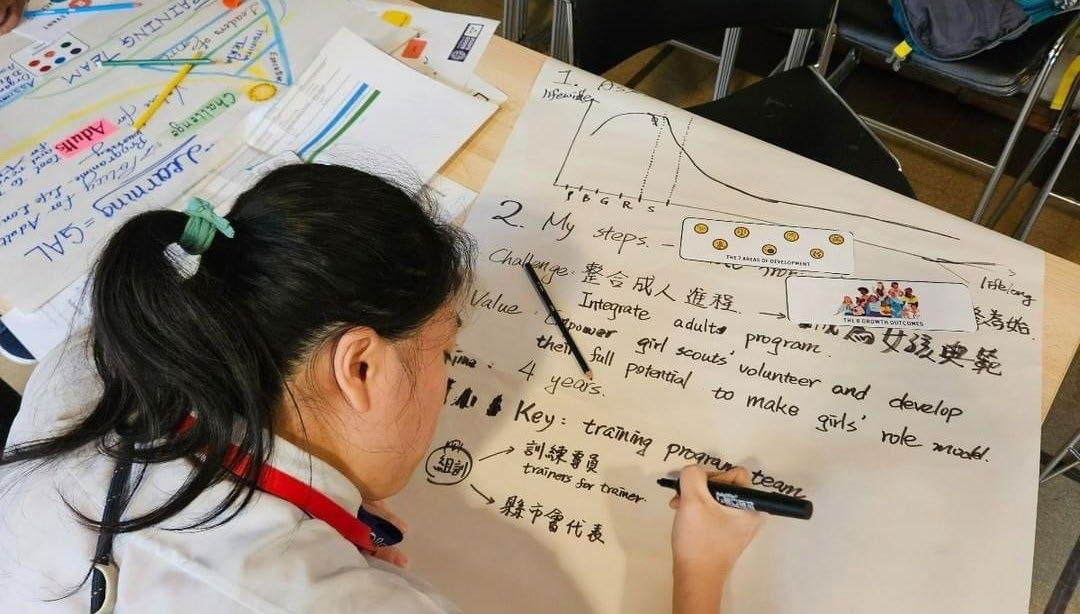 TRAINING TEAM
Leaders of
Challenge
Adults
Programme
Policy for Adult
Life Lon
"Learning = GAL
1.
lifewide
P B G R S
lifelong
2. My steps. —
THE 7 AREAS OF DEVELOPMENT
THE 8 GROWTH OUTCOMES
Challenge: 整合成人進程. →
為女孩典範
Integrate adults program.
Value : Empower girl scouts' volunteer and develop
their full potential to make girls' role model.
Time : 4 years.
Key : training program team
組訓 → 訓練專員
trainers for trainer.
→ 縣市會代表